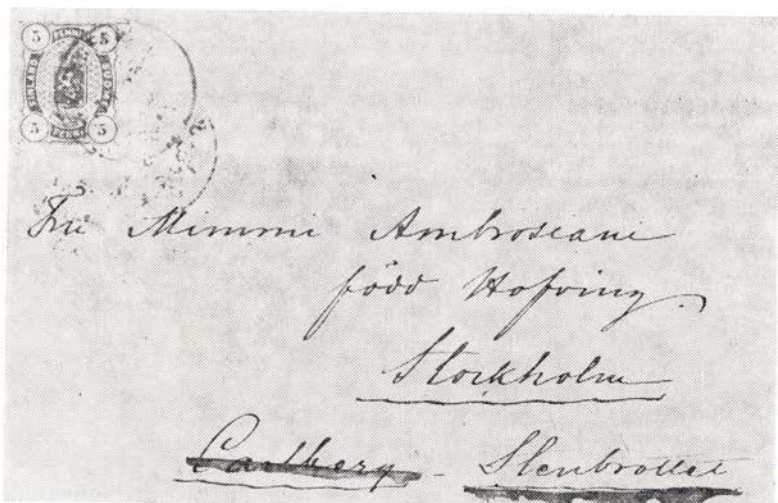 5 5
5 5
Fru Mimmi Ambrosiani
född Hofving.
Stockholm
Carlberg - Stenbrottet